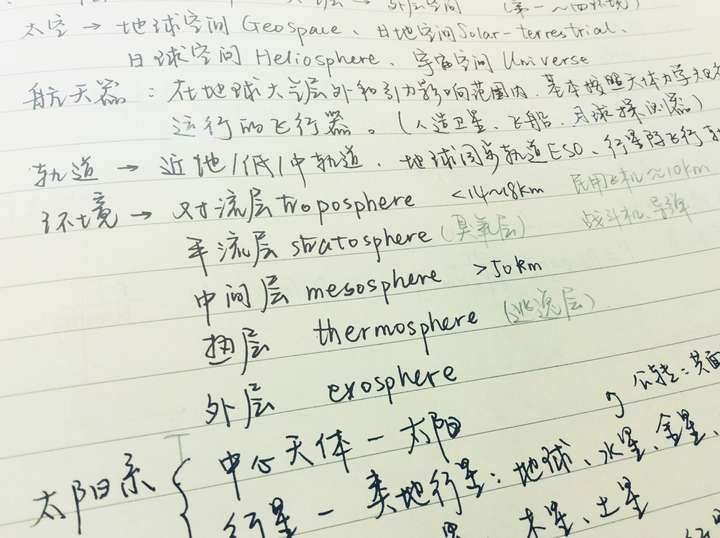 外层空间
太空 → 地球空间 Geospace、日地空间 Solar-terrestrial、
日球空间 Heliosphere、宇宙空间 Universe
航天器：在地球大气层外和引力影响范围内，基本按照天体力学规
运行的飞行器。（人造卫星、飞船、月球探测器）
轨道 → 近地/低/中轨道、地球同步轨道 ESO、行星际飞行轨
环境 → 对流层 troposphere <14~18km 民用飞机≈10km
平流层 stratosphere (臭氧层) 战斗机、导弹
中间层 mesosphere >50km
热层 thermosphere (逃逸层)
外层 exosphere
公转：共面
太阳系 { 中心天体 - 太阳
行星 - 类地行星：地球、水星、金星、
木星、土星